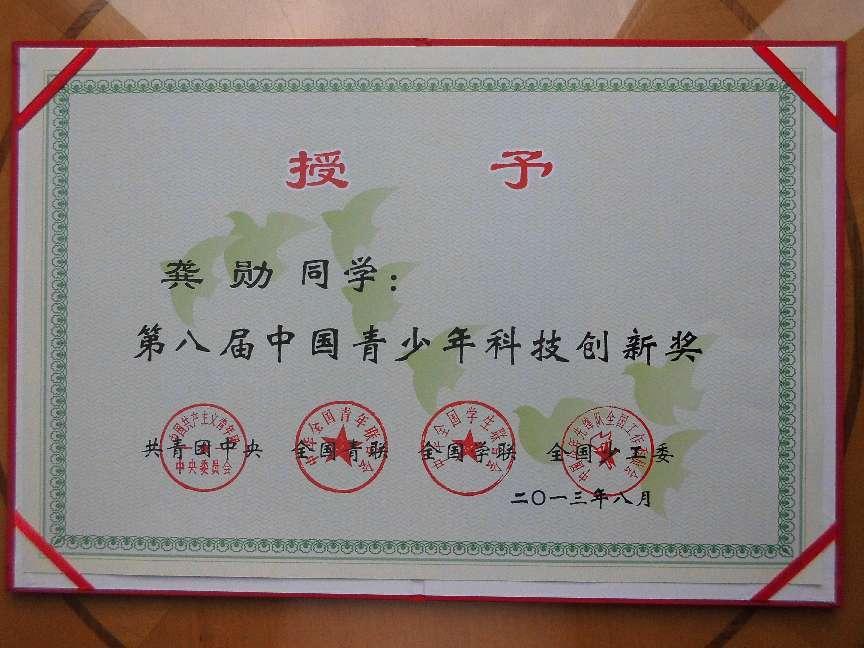 授 予
龚 勋 同学：
第八届中国青少年科技创新奖
共青团中央 全国青联 全国学联 全国少工委
中国共产主义青年团
中央委员会
中华全国青年联合会
中华全国学生联合会
二〇一三年八月